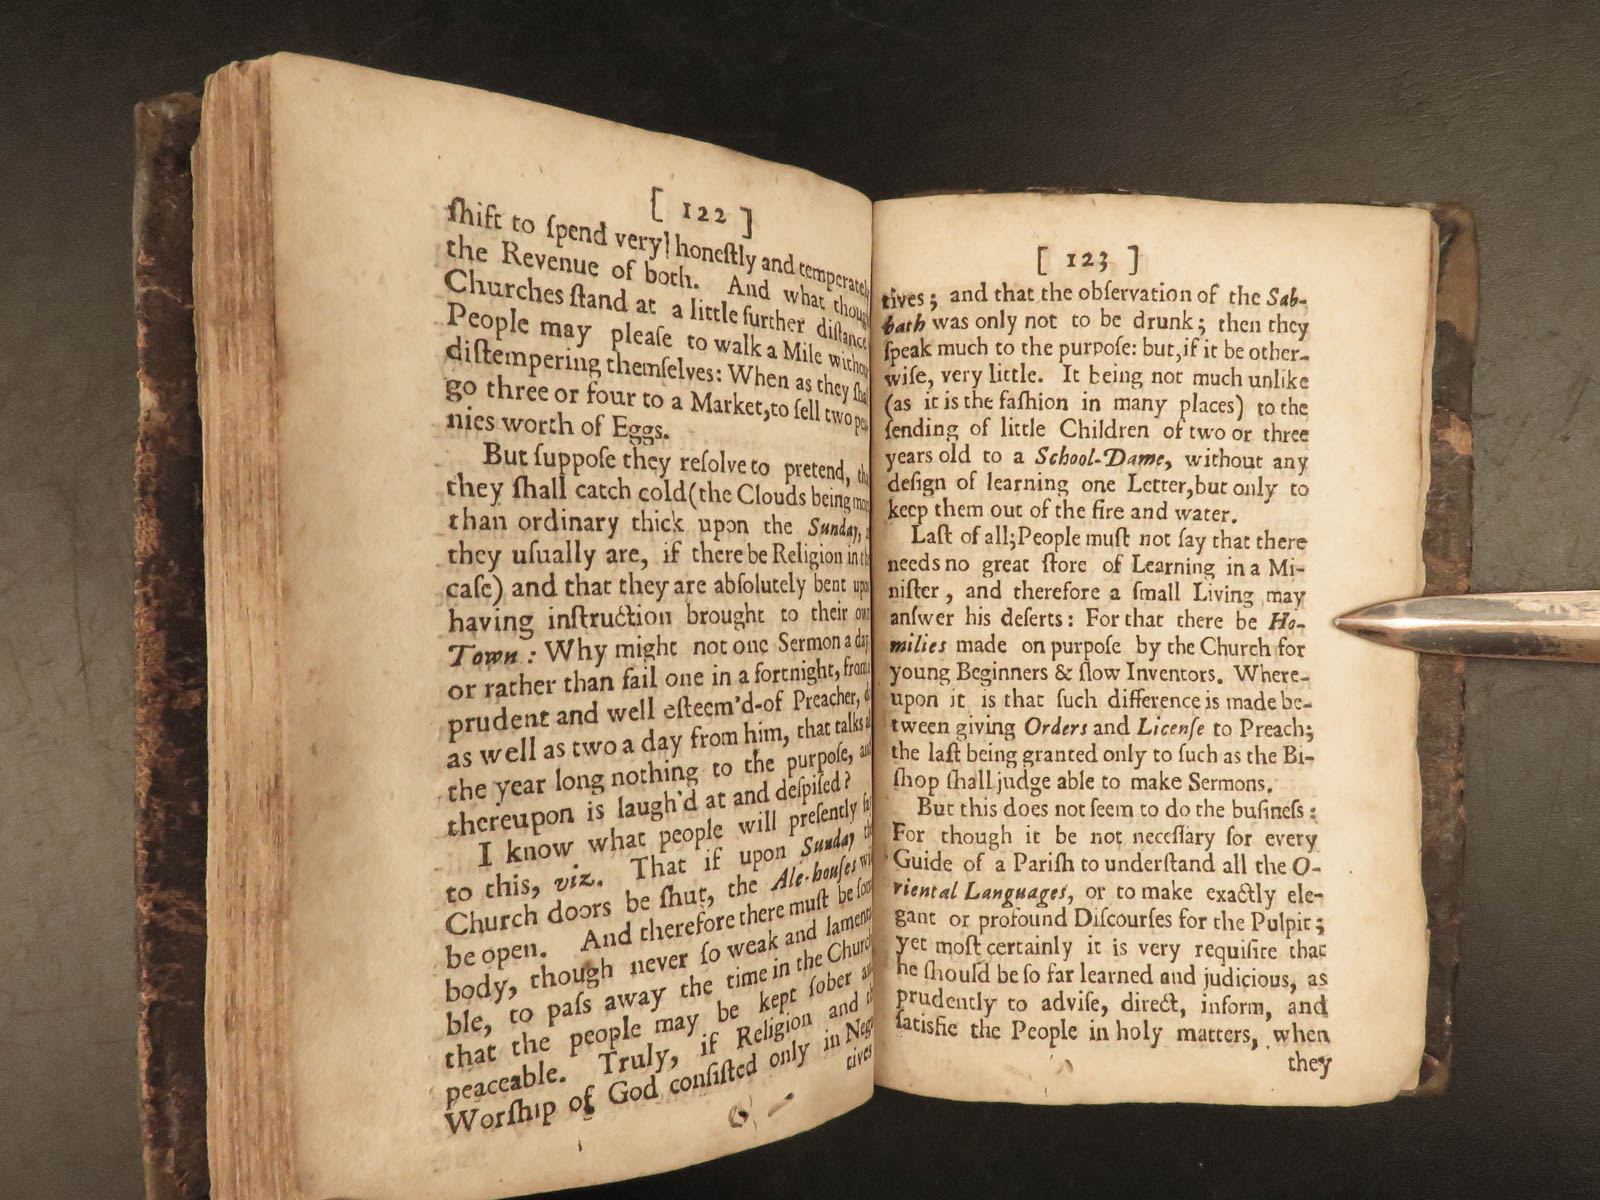 [ 122 ]
ſhift to ſpend very honeſtly and temperately
the Revenue of both. And what though
Churches ſtand at a little further diſtance
People may pleaſe to walk a Mile without
diſtempering themſelves: When as they ſhall
go three or four to a Market, to ſell two pen-
nies worth of Eggs.
But ſuppoſe they reſolve to pretend, that
they ſhall catch cold (the Clouds being more
than ordinary thick upon the Sunday,
they uſually are, if there be Religion in the
caſe) and that they are abſolutely bent upon
having inſtruction brought to their own
Town: Why might not one Sermon a day,
or rather than fail one in a fortnight, from a
prudent and well eſteem'd-of Preacher,
as well as two a day from him, that talks
the year long nothing to the purpoſe, and
thereupon is laugh'd at and deſpiſed?
I know what people will preſently ſay
to this, viz. That if upon Sunday the
Church doors be ſhut, the Ale-houſes will
be open. And therefore there muſt be ſome
body, though never ſo weak and lamenta-
ble, to paſs away the time in the Church
that the people may be kept ſober and
peaceable. Truly, if Religion and the
Worſhip of God conſiſted only in Nega-
tives
[ 123 ]
tives; and that the obſervation of the Sab-
bath was only not to be drunk; then they
ſpeak much to the purpoſe: but, if it be other-
wiſe, very little. It being not much unlike
(as it is the faſhion in many places) to the
ſending of little Children of two or three
years old to a School-Dame, without any
deſign of learning one Letter, but only to
keep them out of the fire and water.
Laſt of all; People muſt not ſay that there
needs no great ſtore of Learning in a Mi-
niſter, and therefore a ſmall Living may
anſwer his deſerts: For that there be Ho-
milies made on purpoſe by the Church for
young Beginners & ſlow Inventors. Where-
upon it is that ſuch difference is made be-
tween giving Orders and Licenſe to Preach;
the laſt being granted only to ſuch as the Bi-
ſhop ſhall judge able to make Sermons.
But this does not ſeem to do the buſineſs:
For though it be not neceſſary for every
Guide of a Pariſh to underſtand all the O-
riental Languages, or to make exactly ele-
gant or profound Diſcourſes for the Pulpit;
yet moſt certainly it is very requiſite that
he ſhould be ſo far learned and judicious, as
prudently to adviſe, direct, inform, and
ſatisfie the People in holy matters, when
they